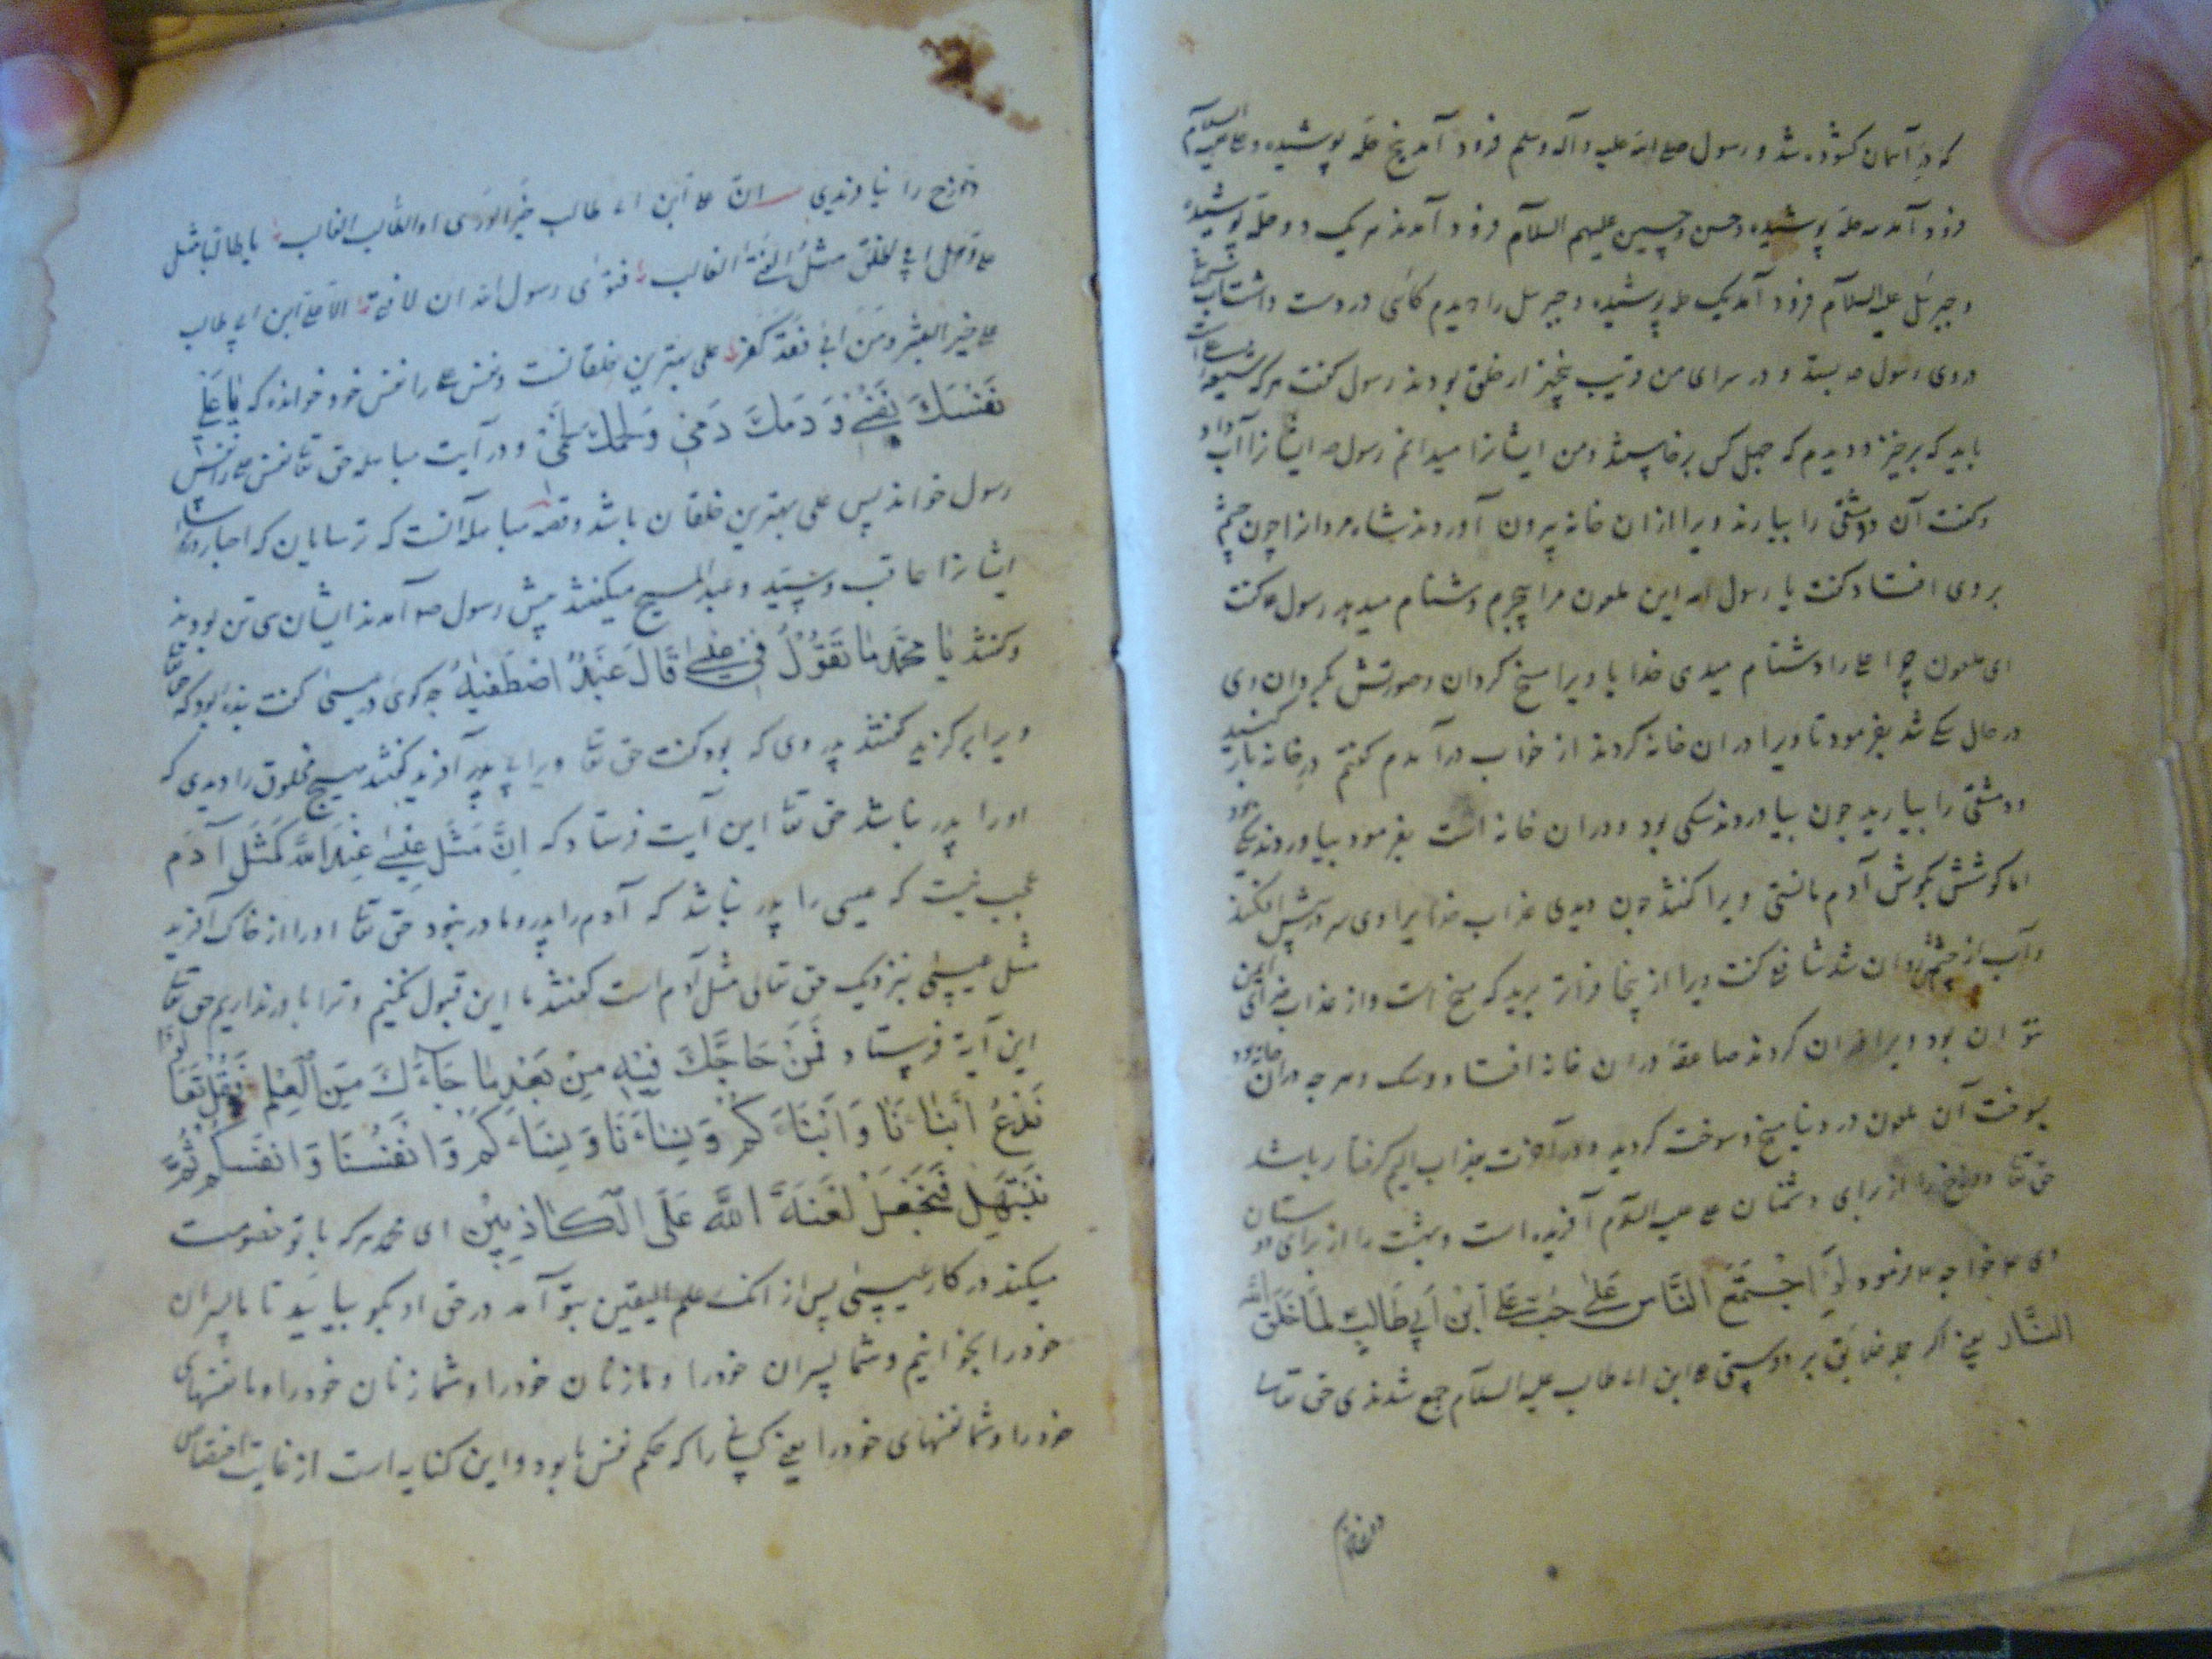 که در آسمان کشوده شد و رسول صلی الله علیه و آله وسلم فرود آمد پنج حله پوشیده و علی علیه السلام
فرود آمد سه حله پوشیده و حسن و حسین علیهم السلام فرود آمدند هر یک دو حله پوشیده
و جبرئیل علیه السلام فرود آمد یک حله پوشیده و جبرئیل را دیدم کاسی در دست داشت آب
در وی رسول ص بستد و در سرای من قریب پنجهزار خلق بودند رسول گفت هر که شیعه علی است
باید که برخیزد دیدم که چهل کس برخاستند و من ایشانرا میدانم رسول ص ایشانرا آب داد
و گفت آن دمشقی را بیارند ویرا از ان خانه بیرون آوردند شاه مردانرا چون چشم
بر وی افتاد گفت یا رسول الله این ملعون مرا بیجرم دشنام میدهد رسول ص گفت
ای ملعون چرا علی را دشنام میدی خدایا ویرا مسخ کردان و صورتش بگردان وی
در حال سگی شد بفرمود تا ویرا در ان خانه کردند از خواب درآمدم گفتم در خانه باز کنید
و دمشقی را بیارید چون بیاوردند سگی بود و در ان خانه است بفرمود بیاوردند سگی بود
اما گوشش بگوش آدم مانستی ویرا گفتند چون دیدی عذاب خدایرا وی سر در پیش افکند
و آب از چشمش روان شد شافعی گفت ویرا از ینجا فراتر برید که مسخ است و از عذاب خدای ایمن
نتوان بود ویرا در ان کردند صاعقه در ان خانه افتاد و سگ و هر چه در ان خانه بود
بسوخت آن ملعون در دنیا مسخ و سوخت کردید و در آخرت بعذاب الیم گرفتار باشد
حق تعا دوزخ را از برای دشمنان علی علیه السلام آفریده است و بهشت را از برای دوستان
وی خواجه فرمود لَوِ اجْتَمَعَ النَّاسُ عَلَىٰ حُبِّ عَلِيِّ ابْنِ أَبِي طَالِبٍ لَمَا خَلَقَ الله
النَّارَ یعنی اگر جمله خلایق بر دوستی علی ابن ابی طالب علیه السلام جمع شدندی حق تعالی
دوزخ را نیافریدی ان علی ابن ابی طالب خیر الوری اد الطالب الغالب یا طالبا مثل
علی خیر البشر و من ابی فقد کفر علی بهترین خلقانست و نفس علی را نفس خود خوانده که یَا عَلِي
نَفْسُكَ نَفْسِي وَ دَمُكَ دَمِي وَ لَحْمُكَ لَحْمِي و در آیت مباهله حق تعا نفس علی را نفس
رسول خواند پس علی بهترین خلقان باشد و قصه مباهله آنست که ترسایان که احبار
ایشانرا عاقب و سید و عبد المسیح میگفتند پیش رسول ص آمدند ایشان سی تن بودند
و گفتند یَا مُحَمَّد مَا تَقُولُ فِي عِيسَى قَالَ عَبْدٌ اصْطَفَيٰهُ چه گوئی در عیسی گفت بنده بود که حق تعا
ویرا برگزید گفتند پدر وی که بود گفت حق تعا ویرا بی پدر آفرید گفتند هیچ مخلوق را دیدی که
او را پدر نباشد حق تعا این آیت فرستاد که إِنَّ مَثَلَ عِيسَىٰ عِنْدَ اللَّهِ كَمَثَلِ آدَمَ
عجب نیست که عیسی را پدر نباشد که آدم را پدر و مادر نبود حق تعا او را از خاک آفرید
مثل عیسی بنزدیک حق تعالی مثل آدم است گفتند ما این قبول نکنیم و ترا باور نداریم حق تعا
این آیة فرستاد فَمَنْ حَاجَّكَ فِيهِ مِنْ بَعْدِ مَا جَاءَكَ مِنَ الْعِلْمِ فَقُلْ تَعَالَوْا
نَدْعُ أَبْنَاءَنَا وَأَبْنَاءَكُمْ وَنِسَاءَنَا وَنِسَاءَكُمْ وَأَنْفُسَنَا وَأَنْفُسَكُمْ ثُمَّ
نَبْتَهِلْ فَنَجْعَلْ لَعْنَةَ اللَّهِ عَلَى الْكَاذِبِينَ ای محمد هر که با تو خصومت
میکند در کار عیسی پس از انک علم الیقین بتو آمد در حق او بگو بیایید تا ما پسران
خود را بخوانیم و شما پسران خود را و ما زنان خود را و شما زنان خود را و ما نفسهای
خود را و شما نفسهای خود را یعنی کسانی را که حکم نفس ما بود و این کنایه است از غایت اختصاص